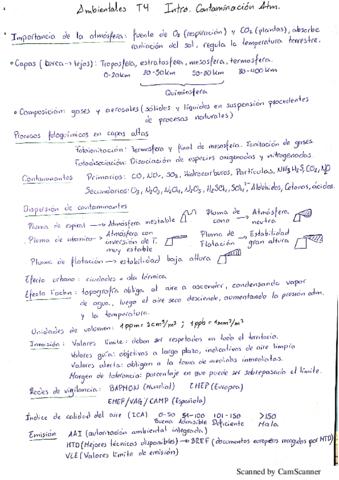 Ambientales T4 Intro. Contaminación Atm.
• Importancia de la atmósfera: fuente de O₂ (respiración) y CO₂ (plantas), absorbe
radiación del sol, regula la temperatura terrestre.
• Capas (cerca→lejos): Troposfera, estratosfera, mesosfera, termosfera.
0-20km 20-50km 50-80km 80-400km
Quimiosfera
• Composición: gases y aerosoles (sólidos y líquidos en suspensión procedentes
de procesos naturales)
Procesos fotoquímicos en capas altas
Fotoionización: Termosfera y final de mesosfera. Ionización de gases
Fotodisociación: Disociación de especies oxigenadas y nitrogenadas.
Contaminantes Primarios: CO, NOₓ, SO₂, Hidrocarburos, Partículas, NH₃, H₂S, CO₂, NO
Secundarios: O₃, aldehídos, Cetonas, ácidos.
Dispersión de contaminantes
Pluma de espiral → Atmósfera inestable Pluma de cono → Atmósfera neutra
Pluma de → Atmósfera con inversión de T. muy estable Pluma de Flotación → Estabilidad gran altura
Pluma de flotación → estabilidad baja altura
Efecto urbano: ciudades = isla térmica.
Efecto Foehn: topografía obliga al aire a ascender, condensando vapor
de agua, luego el aire seco desciende, aumentando la presión atm.
y la temperatura.
Unidades de volumen: 1ppm = 1cm³/m³ ; 1ppb = 1mm³/m³
Inmisión: Valores límite: deben ser respetados en todo el territorio.
Valores guía: objetivos a largo plazo, indicativos de aire limpio
Valores alerta: obligan a la toma de medidas inmediatas.
Margen de tolerancia: porcentaje en que puede ser sobrepasado el límite.
Redes de vigilancia: BAPMON (Mundial) EMEP (Europea)
EMEP/VAG/CAMP (Española)
Índice de calidad del aire (ICA) 0-50 51-100 101-150 >150
Buena Admisible Deficiente Mala
Emisión AAI (autorización ambiental integrada)
MTD (Mejores técnicas disponibles) → BREF (documentos europeos recogidos por MTD)
VLE (Valores límite de emisión)
Scanned by CamScanner